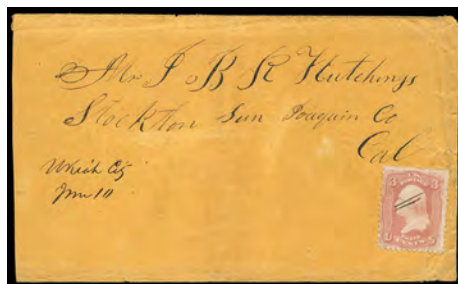 Mr J B R Hutchings
Stockton San Joaquin Co
Cal
Ukiah City
June 10
3 3